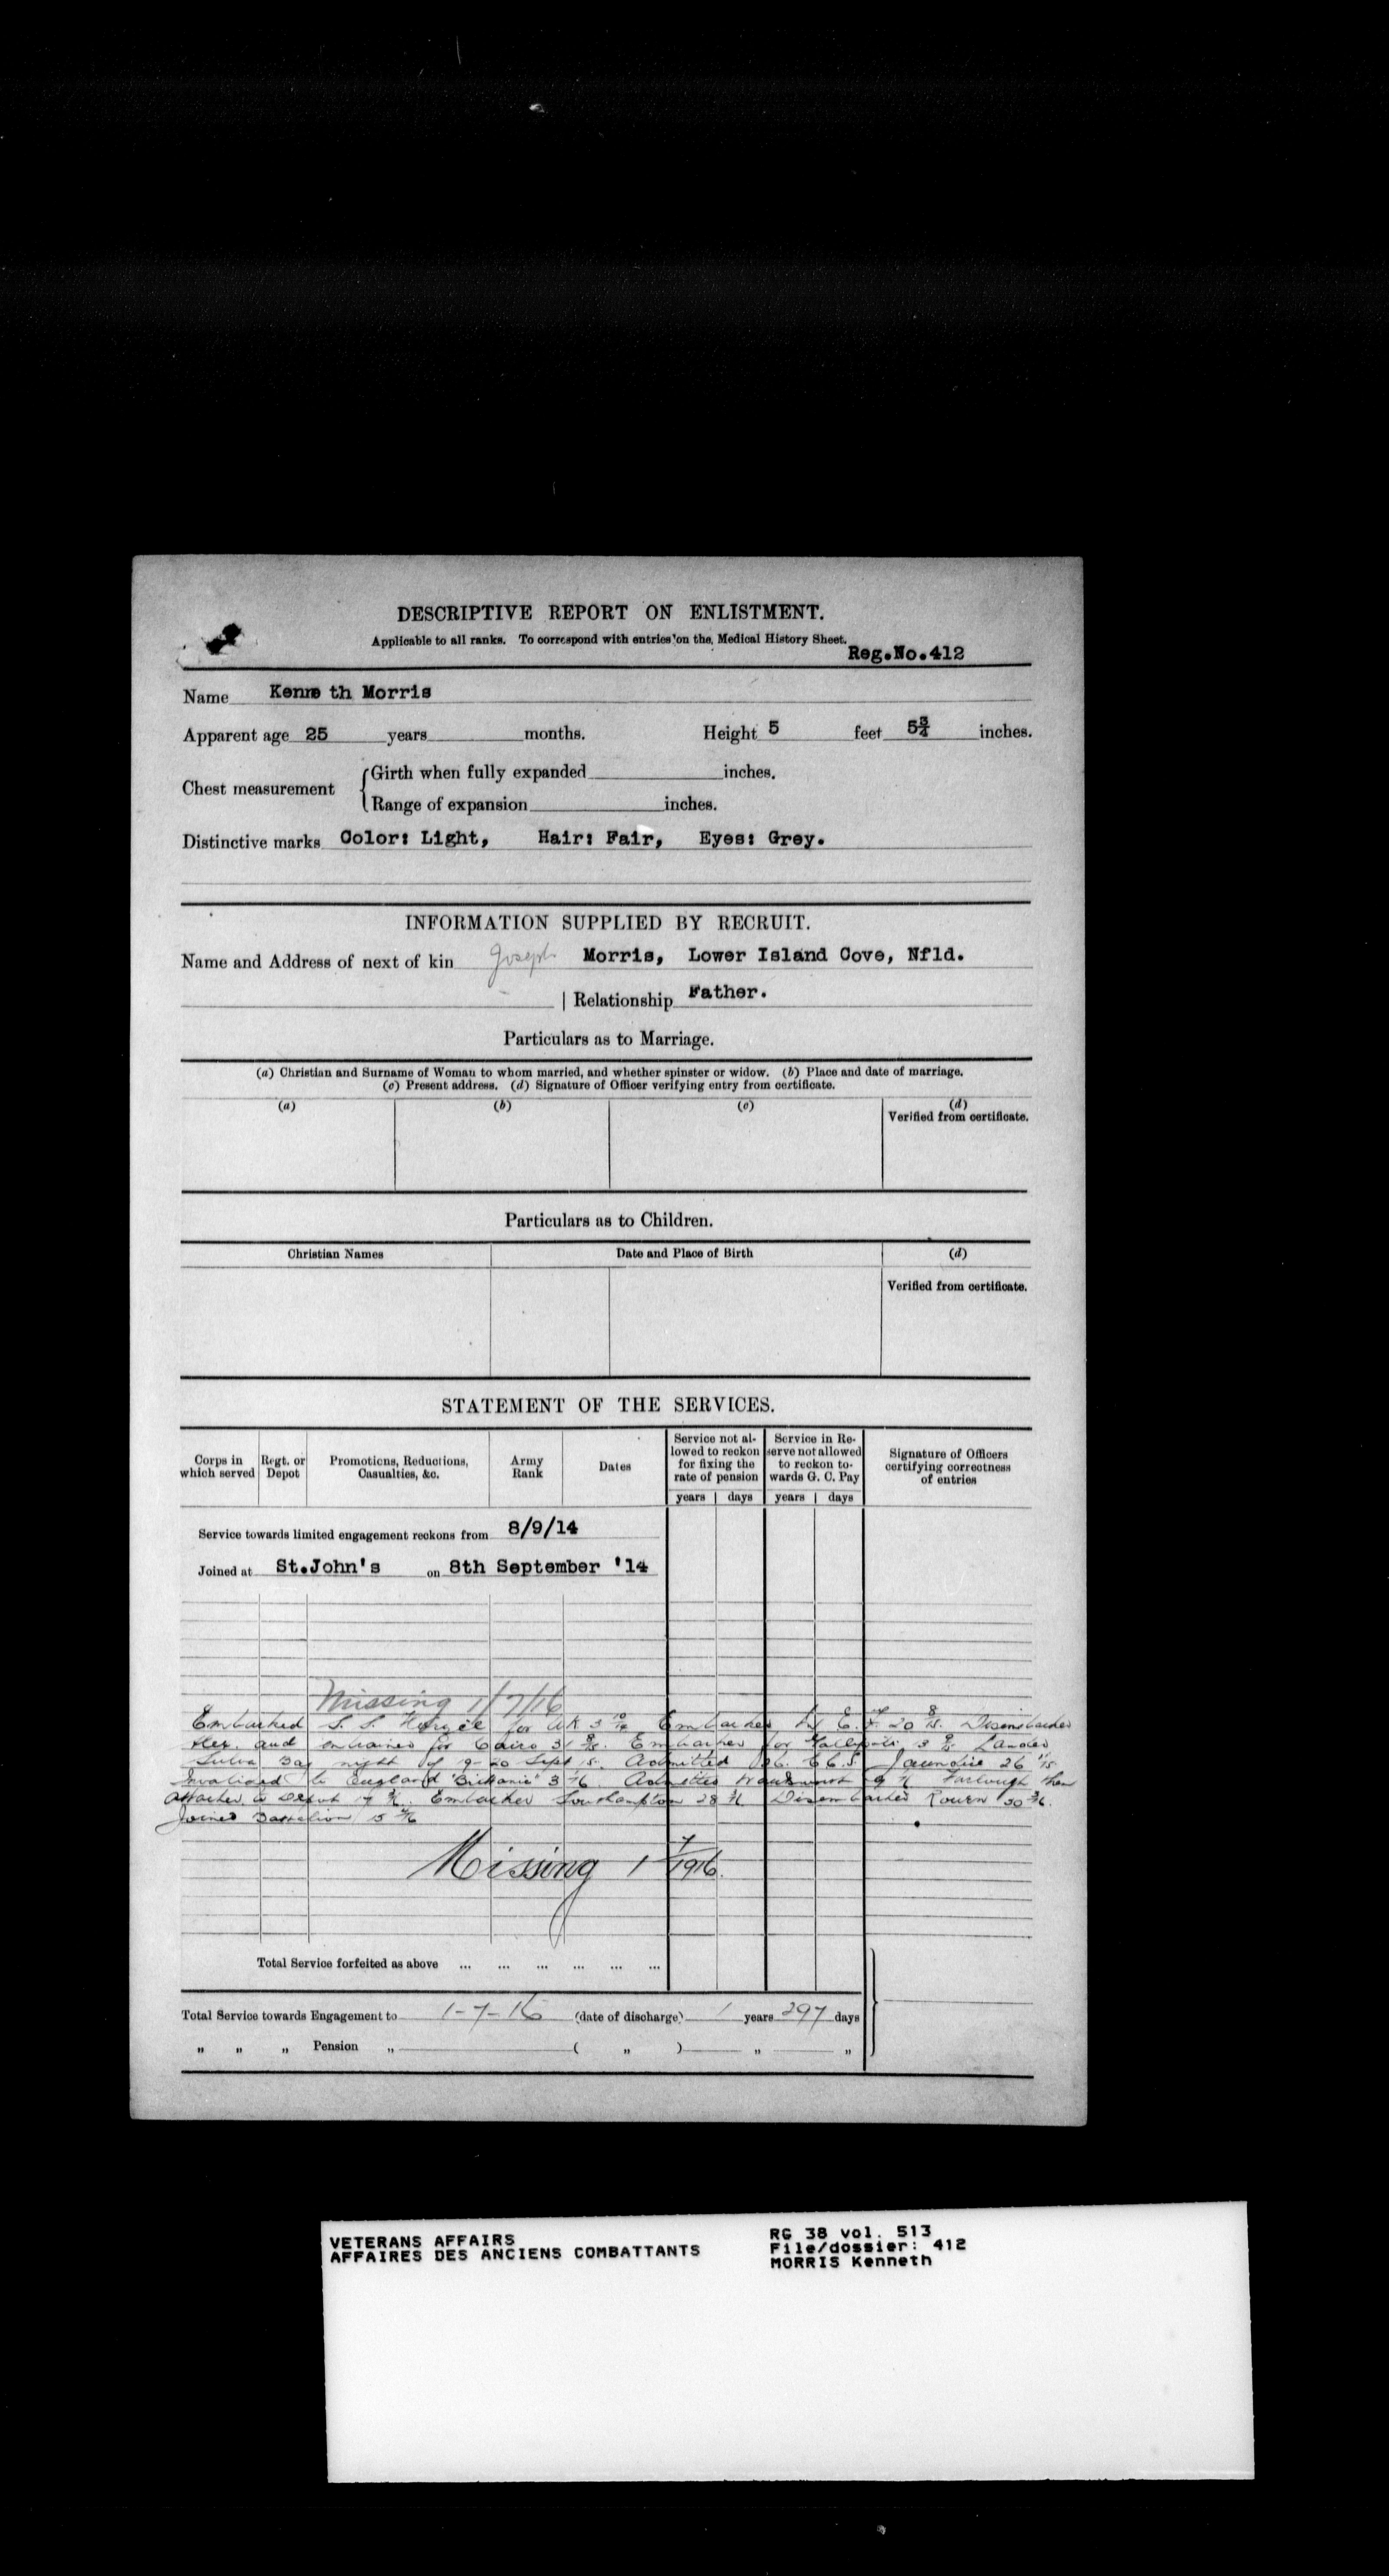 DESCRIPTIVE REPORT ON ENLISTMENT.
Applicable to all ranks. To correspond with entries on the Medical History Sheet.
Reg.No.412
Name Kenne th Morris
Apparent age 25 years months. Height 5 feet 5¾ inches.
Chest measurement
Girth when fully expanded inches.
Range of expansion inches.
Distinctive marks Color: Light, Hair: Fair, Eyes: Grey.
INFORMATION SUPPLIED BY RECRUIT.
Name and Address of next of kin Joseph Morris, Lower Island Cove, Nfld.
| Relationship Father.
Particulars as to Marriage.
(a) Christian and Surname of Woman to whom married, and whether spinster or widow. (b) Place and date of marriage.
(c) Present address. (d) Signature of Officer verifying entry from certificate.
(a) (b) (c) (d)
Verified from certificate.
Particulars as to Children.
Christian Names Date and Place of Birth (d)
Verified from certificate.
STATEMENT OF THE SERVICES.
Corps in which served Regt. or Depot Promotions, Reductions, Casualties, &c. Army Rank Dates Service not allowed to reckon for fixing the rate of pension Service in Reserve not allowed to reckon towards G. C. Pay Signature of Officers certifying correctness of entries
years days years days
Service towards limited engagement reckons from 8/9/14
Joined at St.John's on 8th September '14
Missing 1/7/16
Embarked S. S. for UK 3 10/14 Embarked M E. F 20 8/15. Disembarked
Alex. and entrained for Cairo 31 8/15. Embarked for Gallipoli 13 9/15 Landed
Suvla Bay night of 19-20 Sept 15. Admitted 26. C.C.S. Jaundice 26 11/15
Invalided to England "Britannic" 3 1/16 Admitted Wandsworth 9 1/16 Furlough then
Attached to Depot 17 Embarked Southampton 28 3/16 Disembarked Rouen 30 3/16.
Joined Battalion 15 4/16
Missing 1 7/1916.
Total Service forfeited as above ... ... ... ... ... ...
Total Service towards Engagement to 1-7-16 (date of discharge) 1 years 297 days
" " " Pension " ( " ) " "
VETERANS AFFAIRS
AFFAIRES DES ANCIENS COMBATTANTS
RG 38 vol. 513
File/dossier: 412
MORRIS Kenneth